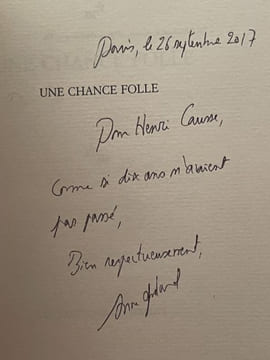 Paris, le 26 septembre 2017
UNE CHANCE FOLLE
Pour Henri Causse,
Comme si dix ans n'avaient
pas passé,
Bien respectueusement,
Anne Godard